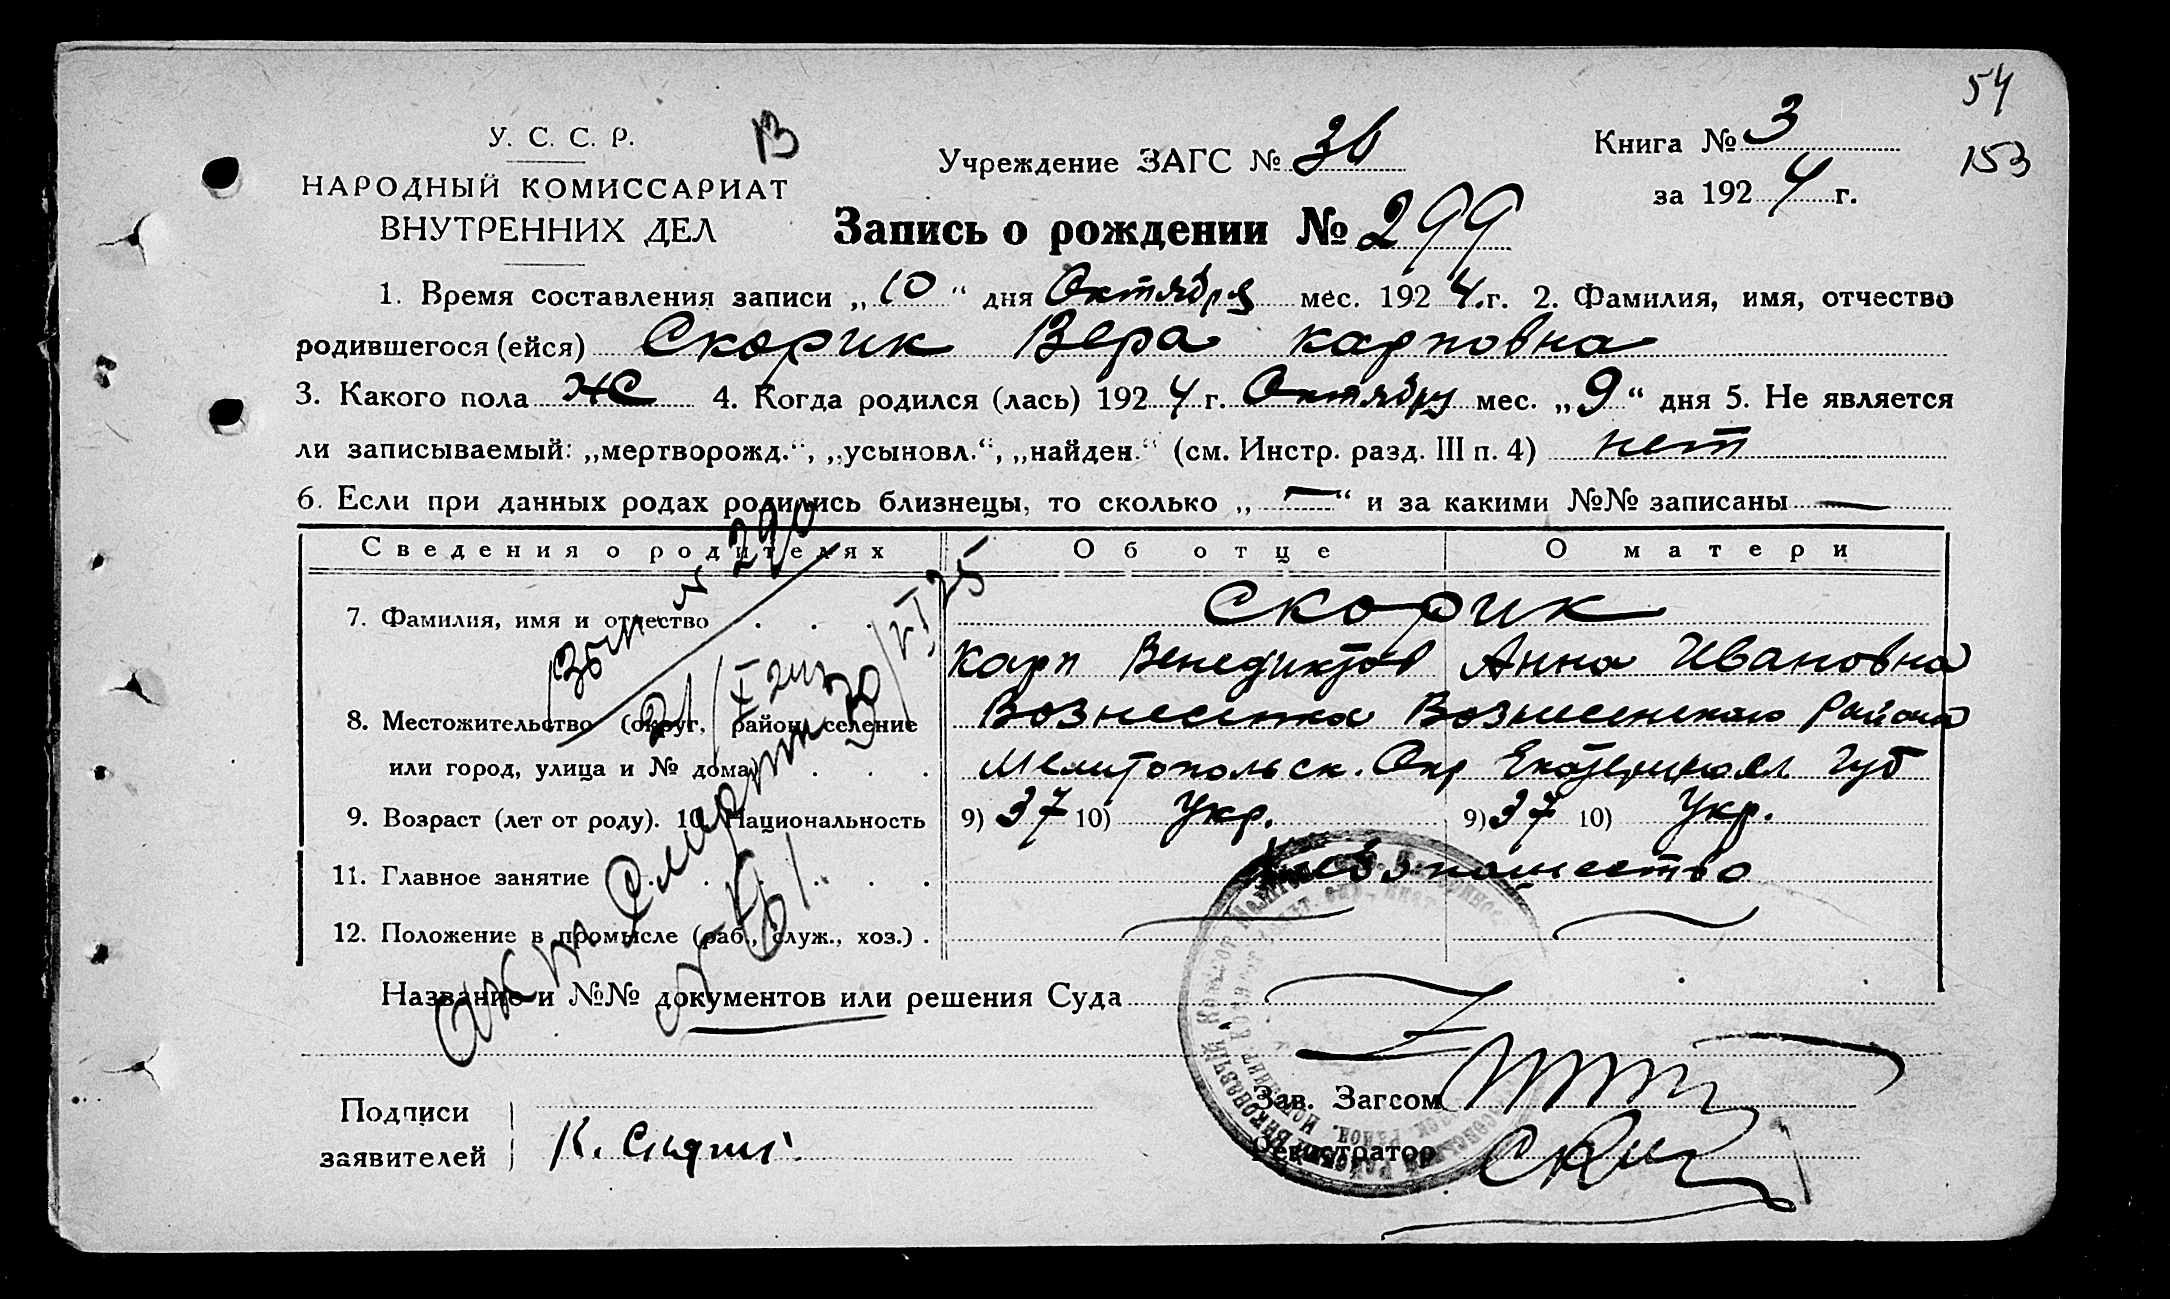 54
У. С. С. Р. В
Учреждение ЗАГС № 36
Книга № 3
153
НАРОДНЫЙ КОМИССАРИАТ
ВНУТРЕННИХ ДЕЛ
за 1924 г.
Запись о рождении № 299
1. Время составления записи „10“ дня Октября мес. 1924 г. 2. Фамилия, имя, отчество
родившегося (ейся) Скорик Вера Карповна
3. Какого пола ж 4. Когда родился (лась) 1924 г. Октября мес. „9“ дня 5. Не является
ли записываемый: „мертворожд.“, „усыновл.“, „найден.“ (см. Инстр. разд. III п. 4) нет
6. Если при данных родах родились близнецы, то сколько „—“ и за какими №№ записаны —
Сведения о родителях Об отце О матери
7. Фамилия, имя и отчество Скорик
Карп Венедиктов Анна Ивановна
8. Местожительство (округ, район, селение Вознесенка Вознесенского Района
или город, улица и № дома) Мелитопольск. Окр Екатериносл Губ
9. Возраст (лет от роду). 10. Национальность 9) 37 10) Укр. 9) 37 10) Укр.
11. Главное занятие Хлебопашество
12. Положение в промысле (раб., служ., хоз.)
Название и №№ документов или решения Суда
Акт смерти
Подписи
заявителей
Зав. Загсом
Регистратор